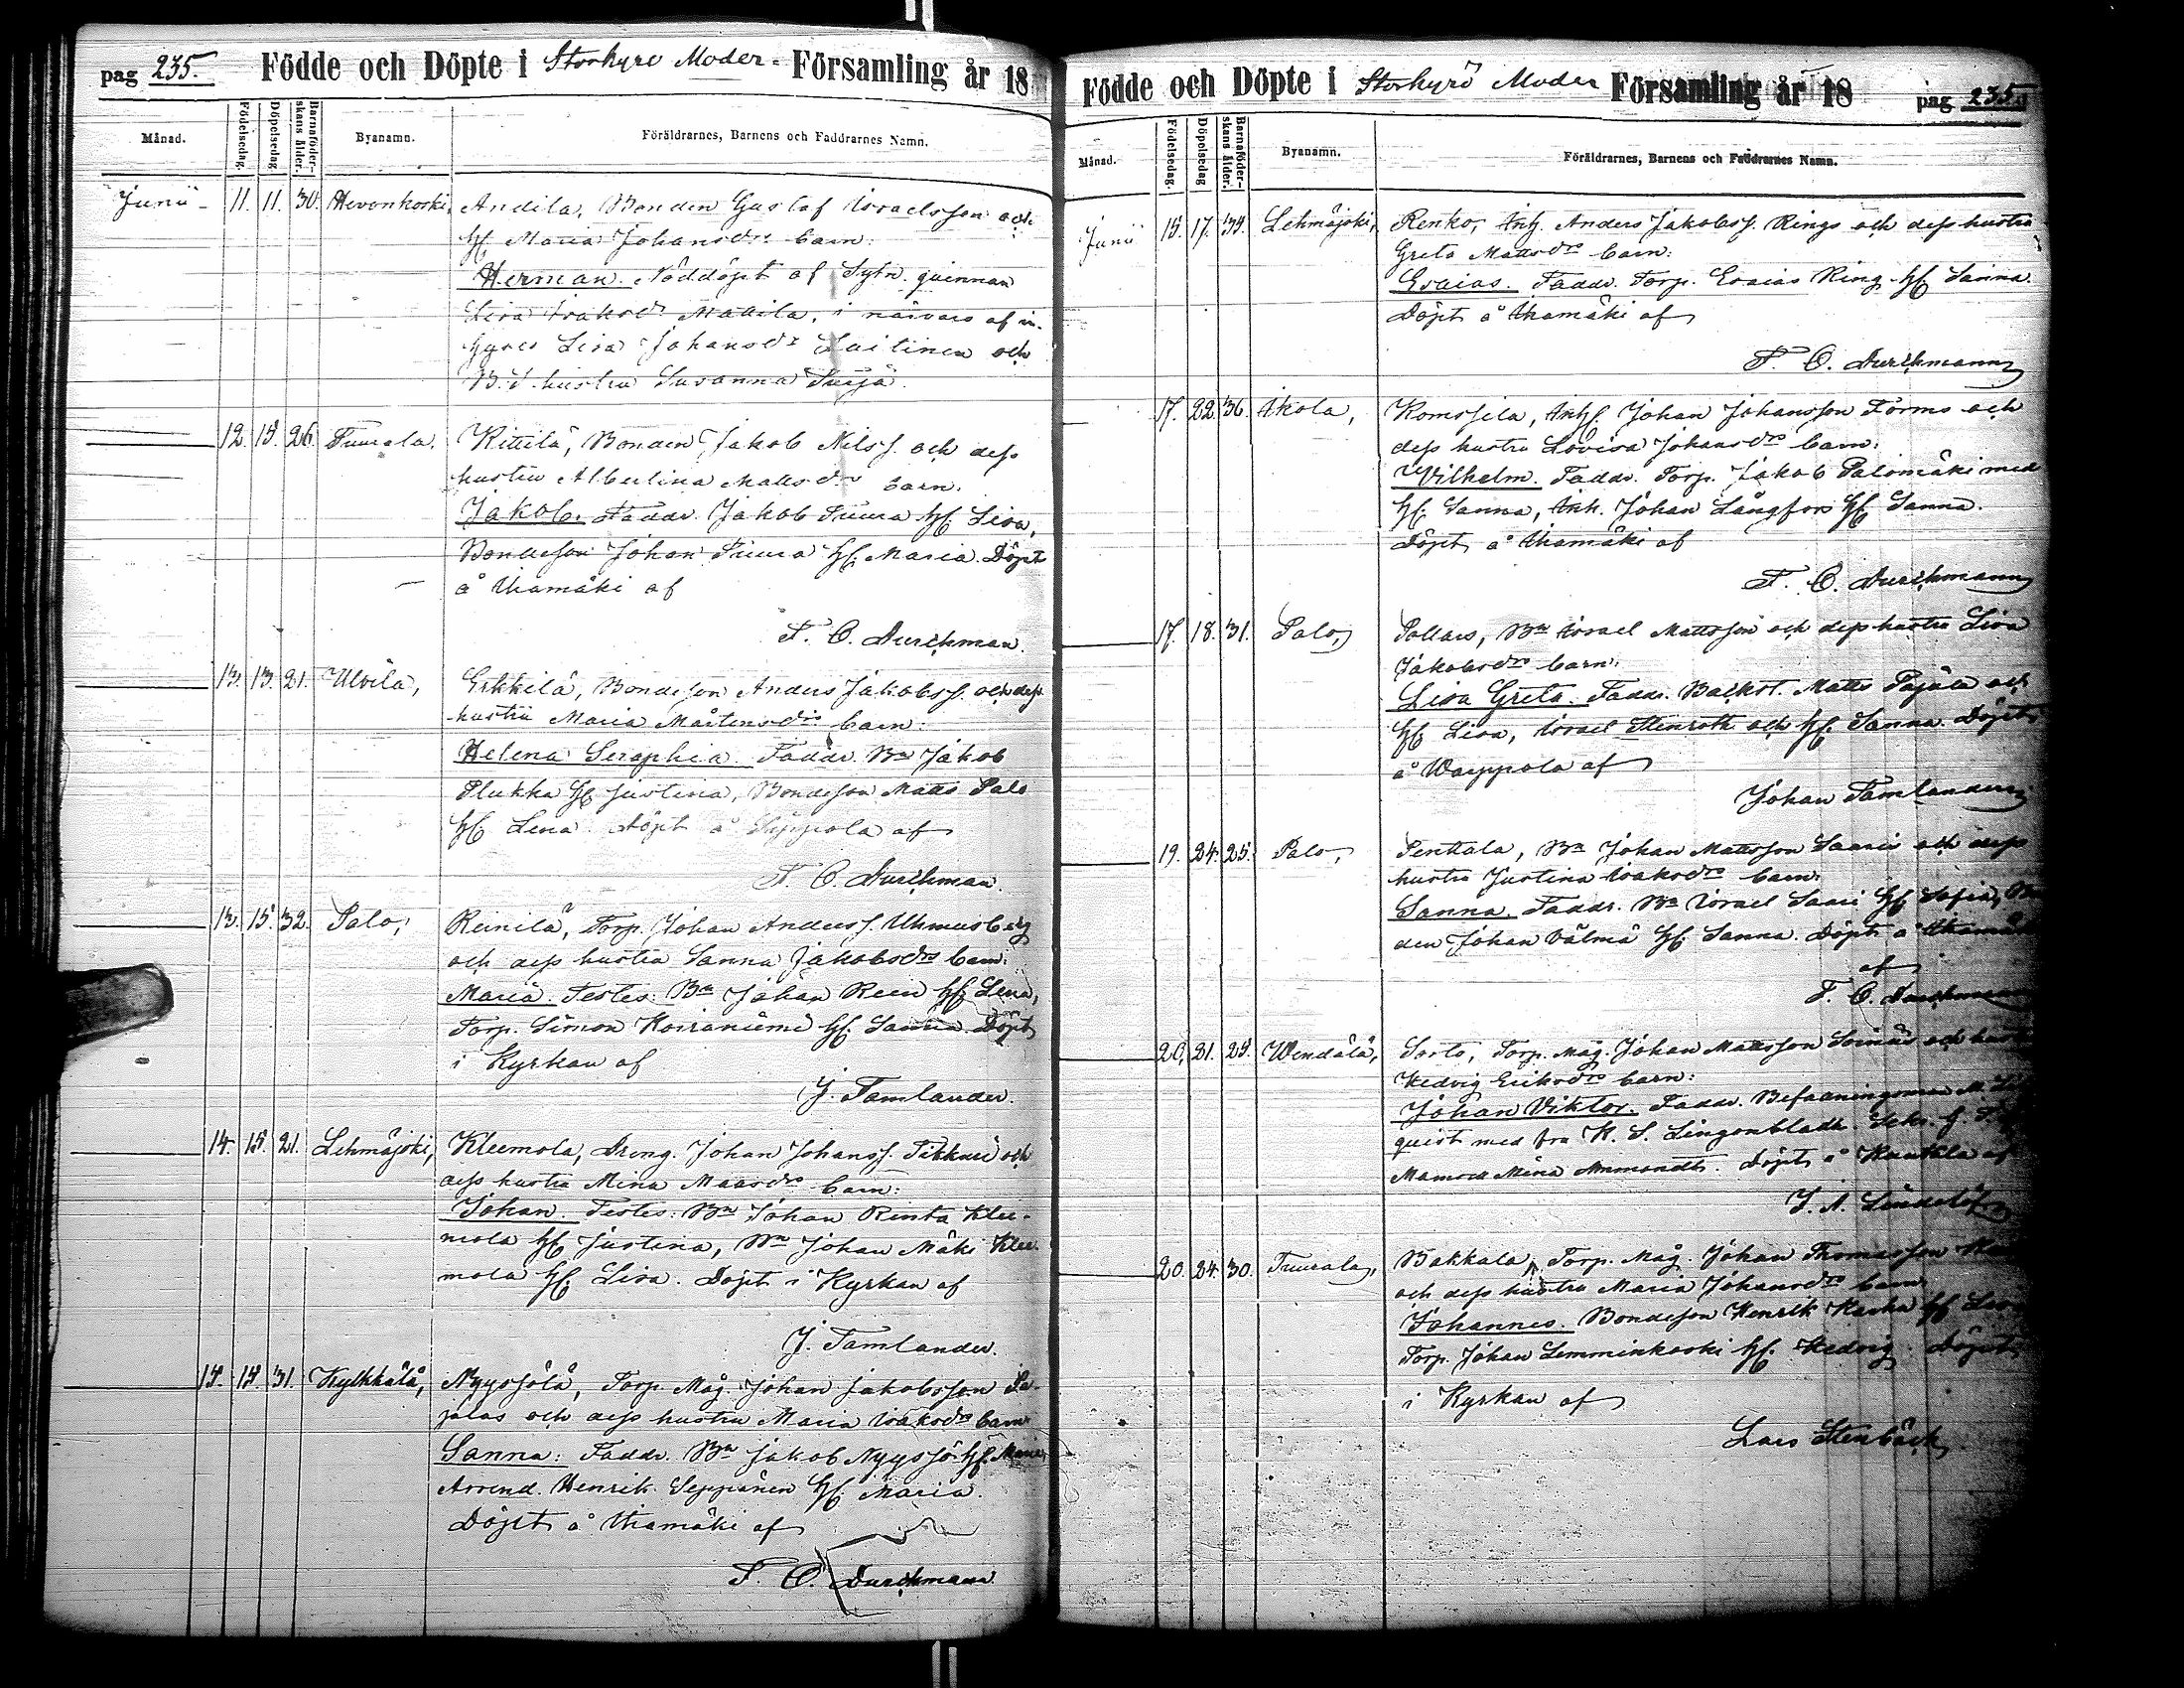 pag 235. Födde och Döpte i Storkyro Moder- Församling år 18
Månad. Födelsedag. Döpelsedag Barnaföder-skans ålder. Byanamn. Föräldrarnes, Barnens och Faddrarnes Namn.
Junii 11. 11. 30. Hevonkoski, Andila, Bonden Gustaf Israelsson och
hf Maria Johansdr barn:
Herman. Nöddöpt af Sytn. qvinnan
Lisa Isaksdr Mattila, i närvaro af in-
hyses Lisa Johansdr Laitinen och
B. S. hustru Susanna
12. 15. 26. Tuurala. Kittilä, Bonden Jakob Nilss. och dess
hustru Albertina Mattsdr barn.
Jakob. Faddr. Jakob Tuura hf Lisa,
Bondeson Johan Tuura hf Maria. Döpt
å Ukamäki af
F. O. Durchman.
13. 13. 21. Ulvila, Erkkilä, Bondeson Anders Jakobss. och dess
hustru Maria Mårtensdr barn:
Helena Seraphia. Faddr. Bn Jakob
Plukka hf Justina, Bondeson Matts Palo
hf Lena. Döpt å Seppola af
F. O. Durchman.
13. 15. 32. Palo, Reinilä, Torp. Johan Anderss. Uhmusberg
och dess hustru Sanna Jakobsdr barn:
Maria. Testes: Bn Johan Rein hf Lena,
Torp. Simon Koiraniemi hf Sanna. Döpt
i Kyrkan af
J. Tamlander.
14. 15. 21. Lehmäjoki, Kleemola, Dreng. Johan Johanss. Tikkari och
dess hustru Mina Maasdr barn:
Johan. Testes: Bn Johan Rinta Klee-
mola hf Justina, Bn Johan Mäki Klee-
mola hf. Lisa. Döpt i Kyrkan af
J. Tamlander.
15. 15. 31. Kylkkälä, Nyyssölä, Torp. Måg. Johan Jakobsson Pa-
jalas och dess hustru Maria Isaksdr barn
Sanna: Faddr. Bn Jakob Nyyssö hf. Maria,
Arrend. Henrik Seppänen hf. Maria.
Döpt å Ukamäki af
F. O. Durchman
Födde och Döpte i Storkyrö Moder Församling år 18 pag 235
Månad. Födelsedag. Döpelsedag Barnaföder-skans ålder. Byanamn. Föräldrarnes, Barnens och Faddrarnes Namn.
Junii 15. 17. 34. Lehmäjoki, Renko, Inh. Anders Jakobss. Rings och dess hustru
Greta Mattsdr barn:
Esaias. Faddr. Torp. Esaias Ring hf Sanna.
Döpt å Ukamäki af
F. O. Durchmann
17. 22. 36. Ikola, Komsila, Inh. Johan Johansson Forms och
dess hustru Lovisa Johansdr barn:
Vilhelm. Faddr. Torp. Jakob Palomäki med
hf. Sanna, Inh. Johan Långfors hf Sanna.
Döpt å Ukamäki af
F. O. Durchmann
17. 18. 31. Palo, Pollars, Bn Israel Mattsson och dess hustru Lisa
Jakobsdr barn:
Lisa Greta. Faddr. Backst. Matts Pajula och
hf Lisa, Israel Stenroth och hf. Sanna. Döpt
å Warppola af
Johan Tamlander
19. 24. 25. Palo, Penttala, Bn Johan Mattsson Saari och dess
hustru Justina Isaksdr barn:
Sanna. Faddr. Bn Israel Saari hf Sofia, Bon
den Johan Välmä hf. Sanna. Döpt å Ukamäki
af
F. O. Durchmann
20. 21. 25. Wendälä, Sorto, Torp. Måg. Johan Mattsson Soinäs och hust
Hedvig Eriksdr barn:
Johan Viktor. Faddr. Befaaningsman M.
quist med fru K. S. Lingonbladh.
Mamsell Mina Döpt å af
20. 24. 30. Tuurala, Bakkala, Torp. Måg. Johan Thomasson
och dess hustru Maria Johansdr barn
Johannes. Bondeson Henrik Karha hf Lisa
Torp. Johan Lemminkoski hf. Hedvig. Döpt
i Kyrkan af
Lars Stenbäck